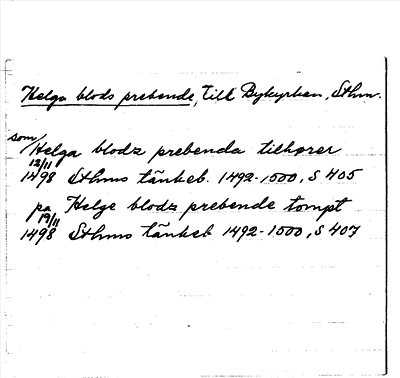 Helga blods prebende, Till Bykyrkan, Sthm.
som Helga blodz prebenda tilhører
12/11 1498 Sthms tänkeb. 1492-1500, S 405
pa Helge blodz prebende tompt
19/11 1498 Sthms tänkeb 1492-1500, S 407